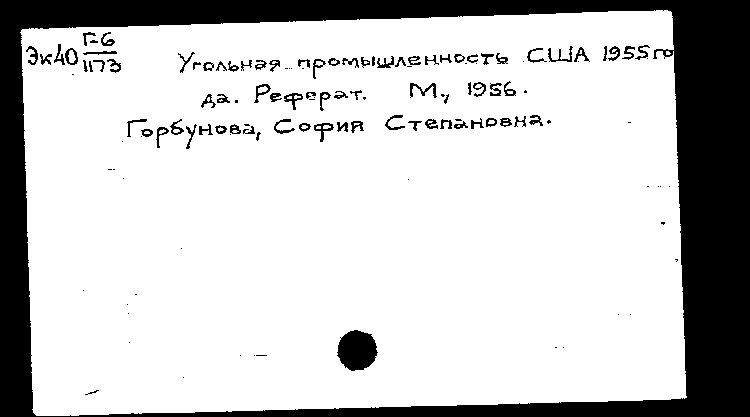 Эк40 Г-6/1173 Угольная промышленность США 1955 го
да. Реферат. М., 1956.
Горбунова, София Степановна.